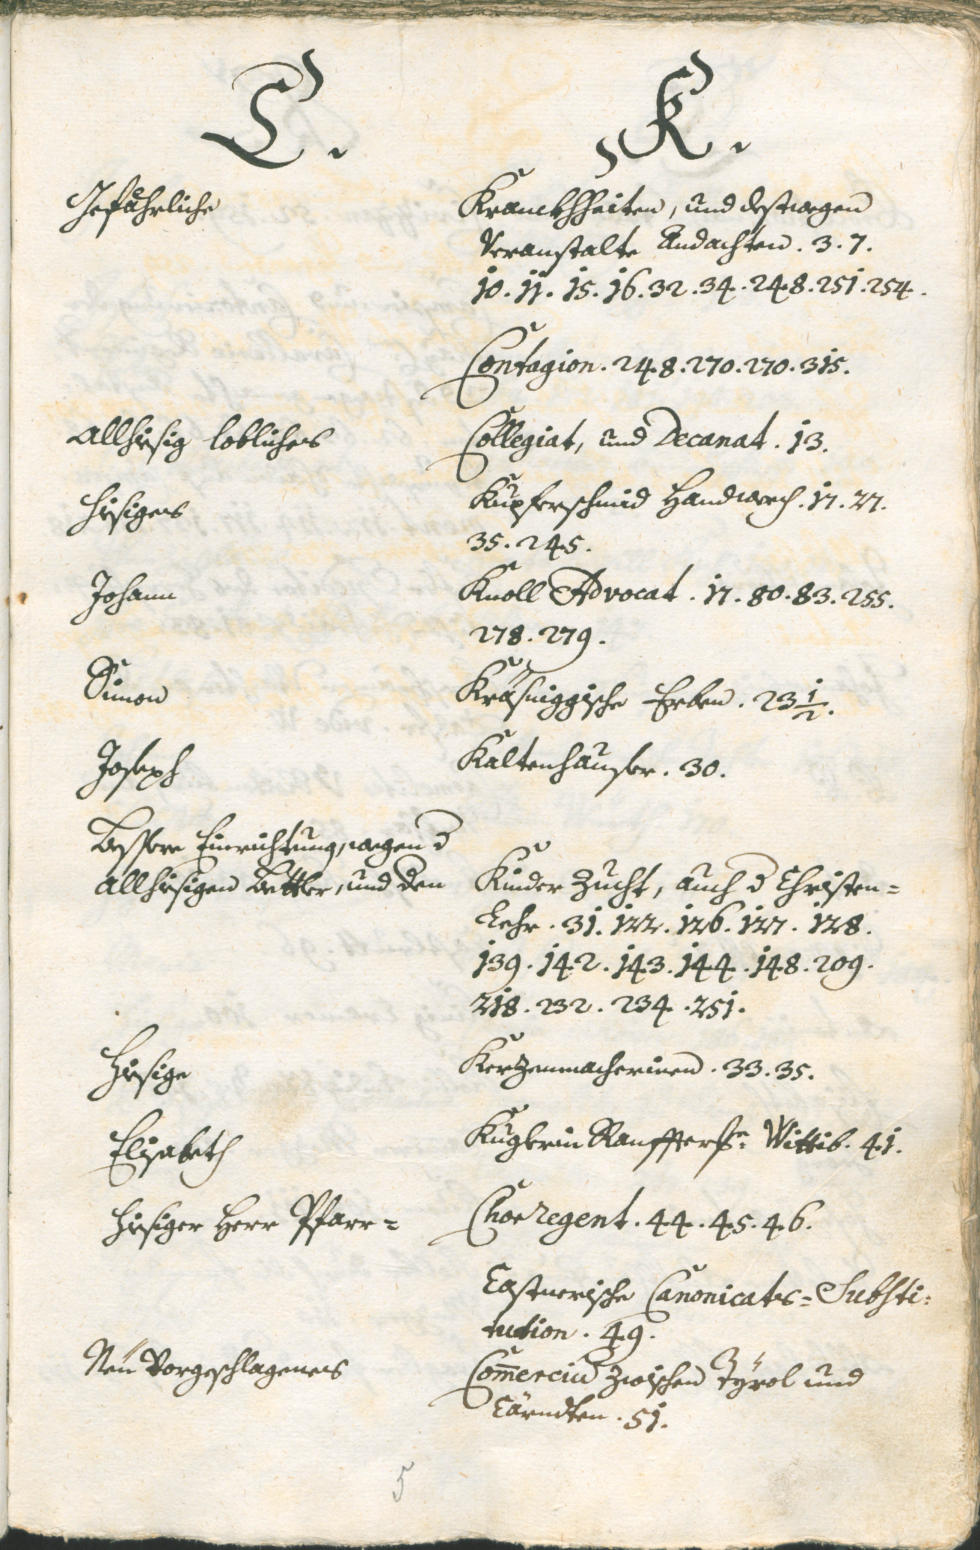 C. K.
Gefährliche Kranckhheiten, und destwegen
Veranstalte Andachten. 3. 7.
10. 11. 15. 16. 32. 34. 248. 251. 254.
Contagion. 248. 270. 270. 315.
Allhiesig lobliches Collegiat, und Decanat. 13.
hiesiges Kupferschmid Handwerch. 17. 27.
35. 245.
Johann Knoll Advocat. 17. 80. 83. 255.
278. 279.
Simon Erben. 23 1/2.
Joseph Kaltenhauser. 30.
Bessere Einrichtung, wegen d
allhiesigen Bettler, und den Kinder Zucht, auch d Christen=
Lehr. 31. 122. 126. 127. 128.
139. 142. 143. 144. 148. 209.
218. 232. 234. 251.
Hiesige Kerzenmacherinen. 33. 35.
Elisabeth Kuglerin Wittib. 41.
hiesiger Herr Pfarr= Chor Regent. 44. 45. 46.
Castnerische Canonicats=Substi=
tution. 49.
Neu Vorgeschlagenes Com̅erciu zwischen Tÿrol und
Cärndten. 51.
5